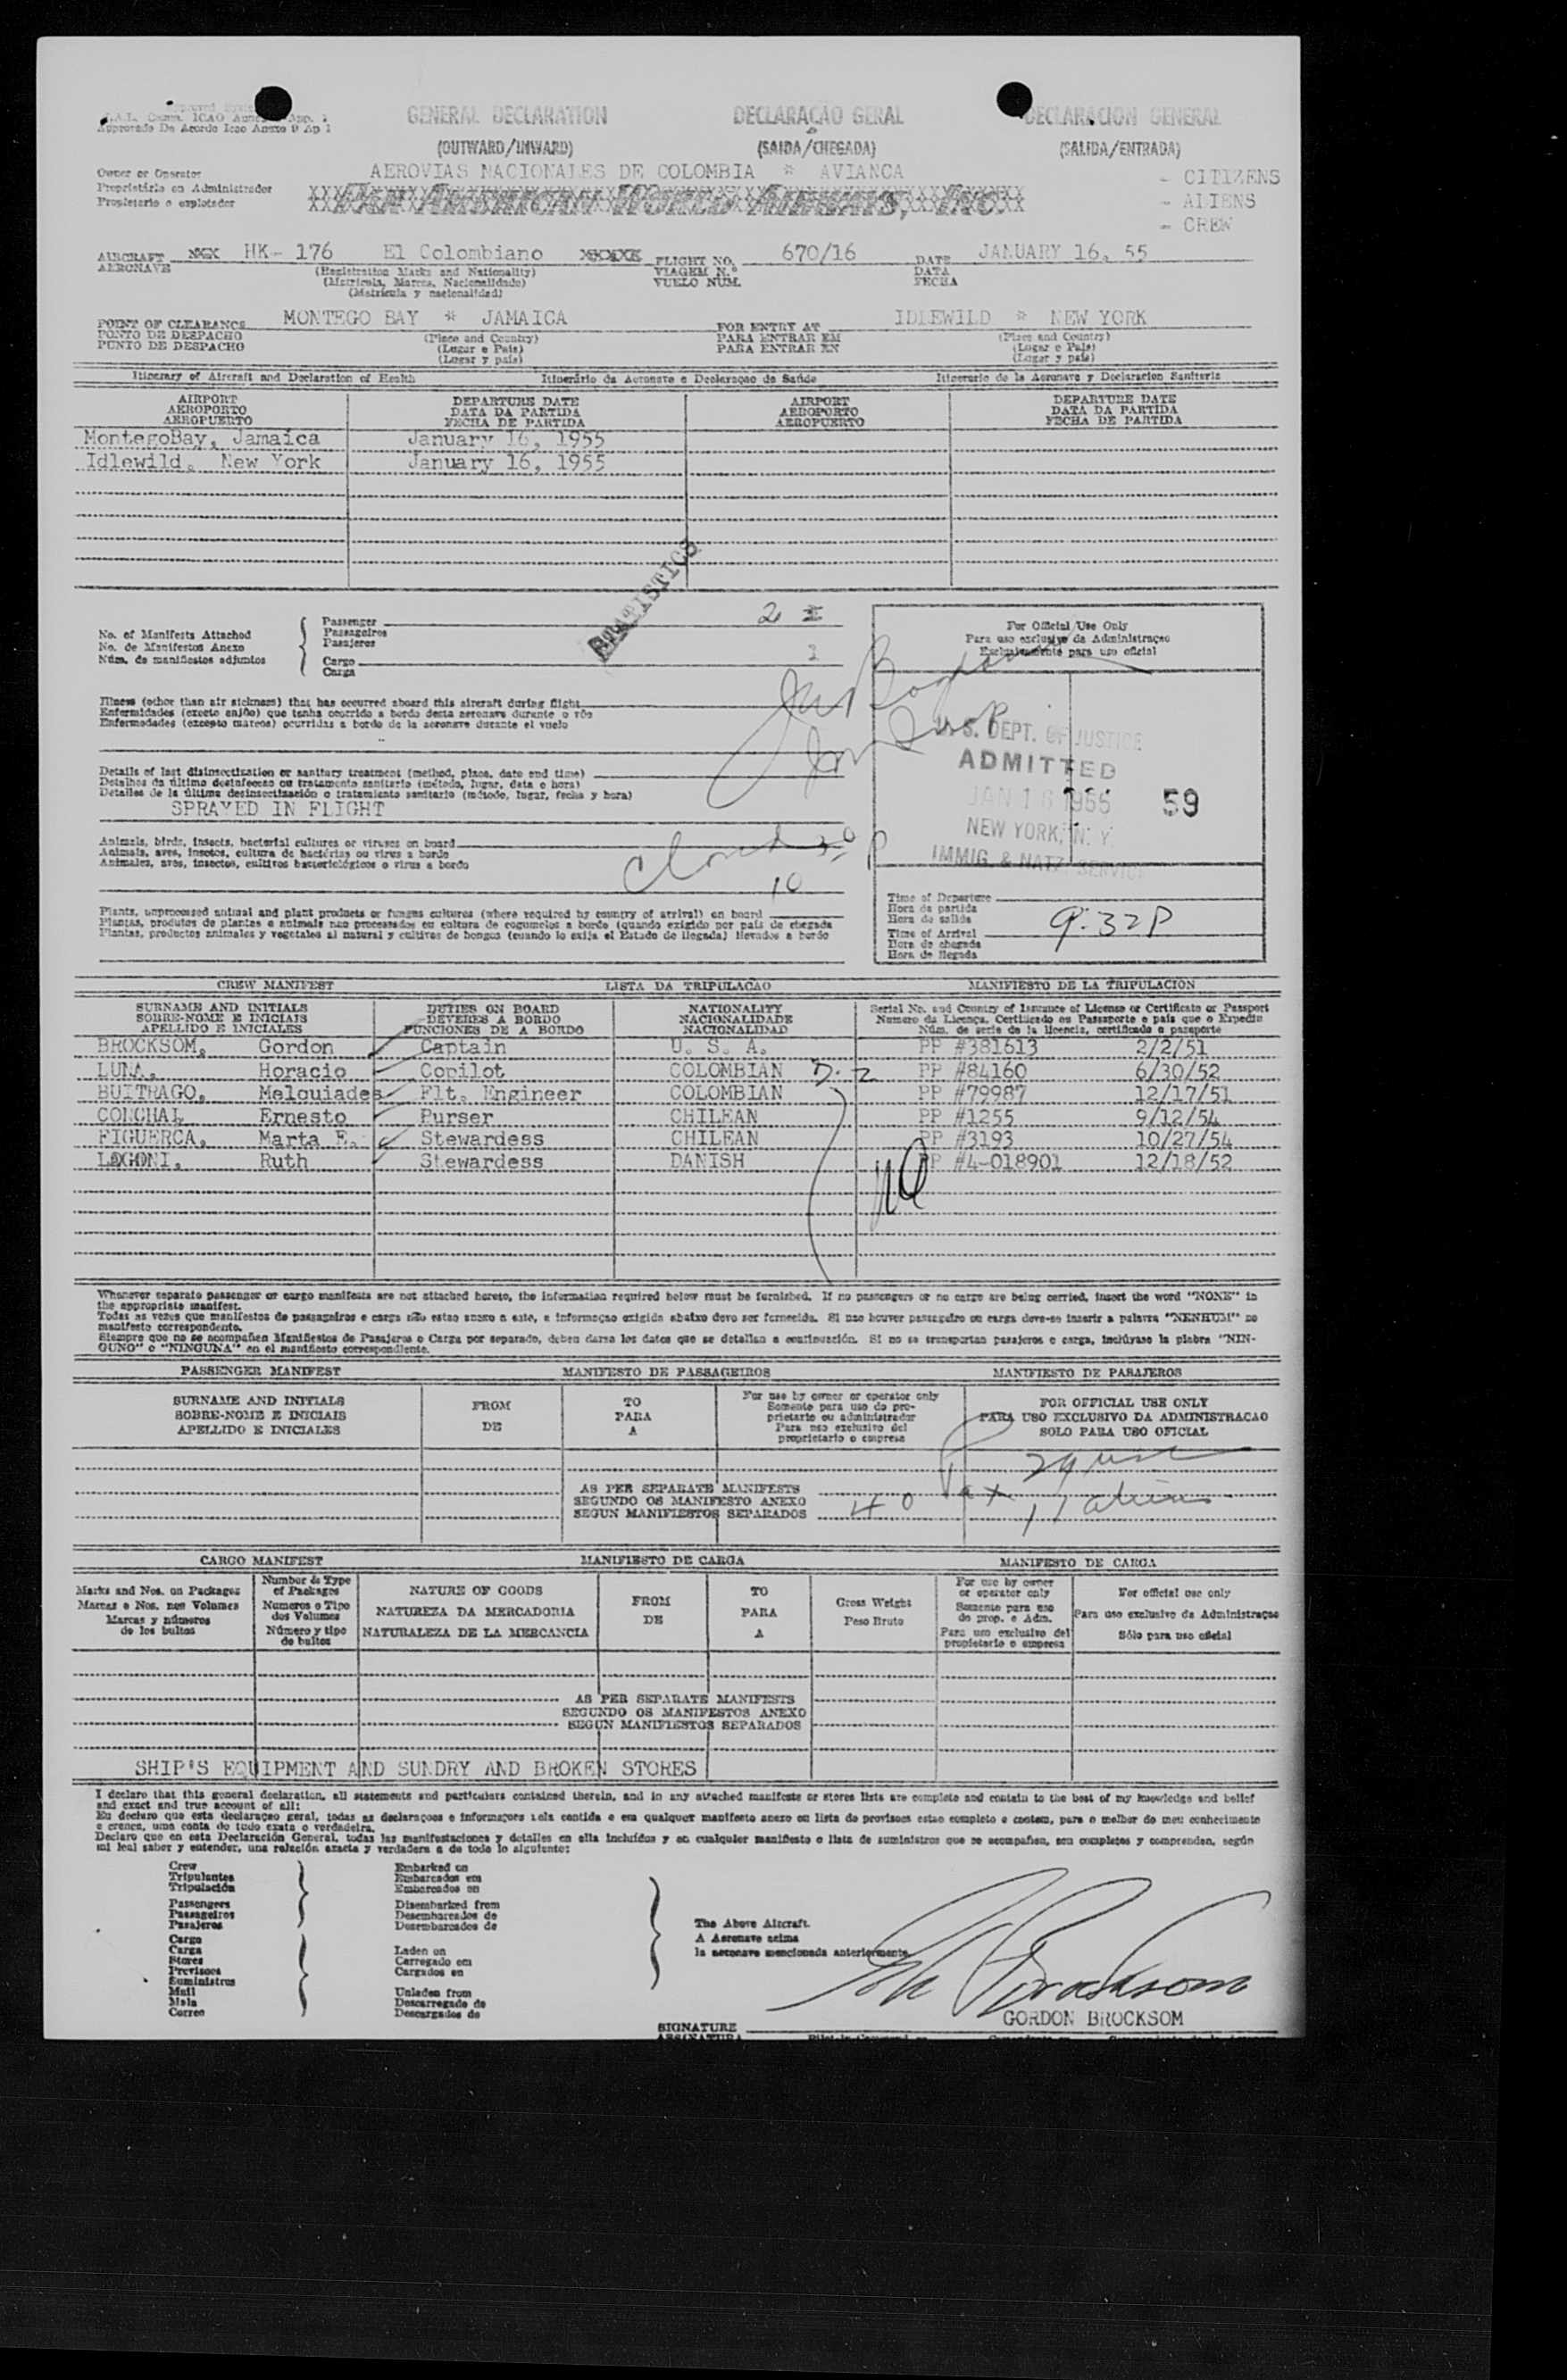 GENERAL DECLARATION DECLARAÇÃO GERAL DECLARACION GENERAL
App. 1
Approvado De Acordo Icao Anexo 9 Ap 1
(OUTWARD/INWARD) (SAIDA/CHEGADA) (SALIDA/ENTRADA)
AEROVIAS NACIONALES DE COLOMBIA * AVIANCA
Owner or Operator
Proprietária ou Administrador
Propietario o explotador
PAN AMERICAN WORLD AIRWAYS, INC.
- CITIZENS
- ALIENS
- CREW
AIRCRAFT XXX HK- 176 El Colombiano XXXXX FLIGHT NO. 670/16 DATE JANUARY 16, 55
AERONAVE (Registration Marks and Nationality) VIAGEM N.º DATA
(Matricula, Marcas, Nacionalidade) VUELO NUM. FECHA
(Matricula y nacionalidad)
POINT OF CLEARANCE MONTEGO BAY * JAMAICA FOR ENTRY AT IDLEWILD * NEW YORK
PONTO DE DESPACHO (Place and Country) PARA ENTRAR EM (Place and Country)
PUNTO DE DESPACHO (Lugar e País) PARA ENTRAR EN (Lugar e País)
(Lugar y país) (Lugar y país)
Itinerary of Aircraft and Declaration of Health Itinerário da Aeronave e Declaraçao de Saúde Itinerario de la Aeronave y Declaracion Sanitaria
AIRPORT DEPARTURE DATE AIRPORT DEPARTURE DATE
AEROPORTO DATA DA PARTIDA AEROPORTO DATA DA PARTIDA
AEROPUERTO FECHA DE PARTIDA AEROPUERTO FECHA DE PARTIDA
MontegoBay, Jamaica January 16, 1955
Idlewild, New York January 16, 1955
STATISTICS
No. of Manifests Attached
No. de Manifestos Anexo
Núm. de manifiestos adjuntos
Passenger 2
Passageiros
Pasajeros
Cargo
Carga
For Official Use Only
Para uso exclusivo da Administraçao
Exclusivamente para uso oficial
Illness (other than air sickness) that has occurred aboard this aircraft during flight
Enfermidades (exceto enjôo) que tenha ocorrido a bordo desta aeronave durante o vôo
Enfermedades (excepto mareos) ocurridas a bordo de la aeronave durante el vuelo
U.S. DEPT. OF JUSTICE
ADMITTED
JAN 16 1955 59
NEW YORK, N. Y.
IMMIG. & NATZ. SERVICE
Details of last disinsectization or sanitary treatment (method, place, date and time)
Detalhes da última desinfeccao ou tratamento sanitario (método, lugar, data e hora)
Detalles de la última desinsectización o tratamiento sanitario (método, lugar, fecha y hora)
SPRAYED IN FLIGHT
Animals, birds, insects, bacterial cultures or viruses on board
Animais, aves, insetos, cultura de bactérias ou virus a bordo
Animales, aves, insectos, cultivos bacteriológicos o virus a bordo
10
Plants, unprocessed animal and plant products or fungus cultures (where required by country of arrival) on board
Plantas, produtos de plantas e animais nao processados ou cultura de cogumelos a bordo (quando exigido por país de chegada
Plantas, productos animales y vegetales al natural y cultivos de hongos (cuando lo exija el Estado de llegada) llevados a bordo
Time of Departure
Hora da partida
Hora de salida
Time of Arrival 9:32P
Hora de chegada
Hora de llegada
CREW MANIFEST LISTA DA TRIPULACAO MANIFIESTO DE LA TRIPULACION
SURNAME AND INITIALS DUTIES ON BOARD NATIONALITY Serial No. and Country of Issuance of License or Certificate or Passport
SOBRE-NOME E INICIAIS DEVERES A BORDO NACIONALIDADE Numero da Licença, Certificado ou Passaporte e pais que o Expediu
APELLIDO E INICIALES FUNCIONES DE A BORDO NACIONALIDAD Núm. de serie de la licencia, certificado o pasaporte
BROCKSOM, Gordon Captain U. S. A. PP #381613 2/2/51
LUNA, Horacio Copilot COLOMBIAN PP #84160 6/30/52
BUITRAGO, Melquiades Flt. Engineer COLOMBIAN PP #79987 12/17/51
CONCHAL Ernesto Purser CHILEAN PP #1255 9/12/54
FIGUERCA, Marta E. Stewardess CHILEAN PP #3193 10/27/54
LOGONI, Ruth Stewardess DANISH PP #4-018901 12/18/52
Whenever separate passenger or cargo manifests are not attached hereto, the information required below must be furnished. If no passengers or no cargo are being carried, insert the word "NONE" in
the appropriate manifest.
Todas as vezes que manifestos de passageiros e carga não estao anexo a este, a informaçao exigida abaixo deve ser fornecida. Si nao houver passageiro ou carga deve-se inserir a palavra "NENHUM" no
manifesto correspondente.
Siempre que no se acompañen Manifiestos de Pasajeros o Carga por separado, deben darse los datos que se detallan a continuación. Si no se transportan pasajeros o carga, inclúyase la plabra "NIN-
GUNO" o "NINGUNA" en el manifiesto correspondiente.
PASSENGER MANIFEST MANIFESTO DE PASSAGEIROS MANIFIESTO DE PASAJEROS
SURNAME AND INITIALS FROM TO For use by owner or operator only FOR OFFICIAL USE ONLY
SOBRE-NOME E INICIAIS DE PARA Somente para uso do pro- PARA USO EXCLUSIVO DA ADMINISTRACAO
APELLIDO E INICIALES A prietario ou administrador SOLO PARA USO OFICIAL
Para uso exclusivo del
propietario o empresa
AS PER SEPARATE MANIFESTS
SEGUNDO OS MANIFESTO ANEXO 40 Pax 11 aliens
SEGUN MANIFIESTOS SEPARADOS
CARGO MANIFEST MANIFIESTO DE CARGA MANIFESTO DE CARGA
Marks and Nos. on Packages Number & Type of Packages NATURE OF GOODS FROM TO Gross Weight For use by owner or operator only For official use only
Marcas e Nos. nos Volumes Numeros e Tipo dos Volumes NATUREZA DA MERCADORIA DE PARA Peso Bruto Somente para uso do prop. e Adm. Para uso exclusivo da Administraçao
Marcas y números de los bultos Número y tipo de bultos NATURALEZA DE LA MERCANCIA A Para uso exclusivo del propietario o empresa Sólo para uso oficial
AS PER SEPARATE MANIFESTS
SEGUNDO OS MANIFESTOS ANEXO
SEGUN MANIFIESTOS SEPARADOS
SHIP'S EQUIPMENT AND SUNDRY AND BROKEN STORES
I declare that this general declaration, all statements and particulars contained therein, and in any attached manifests or stores lists are complete and contain to the best of my knowledge and belief
and exact and true account of all:
Eu declaro que esta declaraçao geral, todas as declaraçoes e informaçoes nela contida e em qualquer manifesto anexo ou lista de provisoes estao completo e contem, para o melhor do meu conhecimento
e crença, uma conta do tudo exata o verdadeira.
Declaro que en esta Declaración General, todas las manifestaciones y detalles en ella incluídos y en cualquier manifiesto o lista de suministros que se acompañan, son completos y comprenden, según
mi leal saber y entender, una relación exacta y verdadera a de todo lo siguiente:
Crew Embarked on
Tripulantes Embarcados em
Tripulación Embarcados en
Passengers Disembarked from
Passageiros Desembarcados de
Pasajeros Desembarcados de
The Above Aircraft.
A Aeronave acima
la aeronave mencionada anteriormente.
Cargo
Carga Laden on
Stores Carregado em
Previsoes Cargados en
Suministros
Mail Unladen from
Mala Descarregado de
Correo Descargados de
GORDON BROCKSOM
SIGNATURE
ASSINATURA